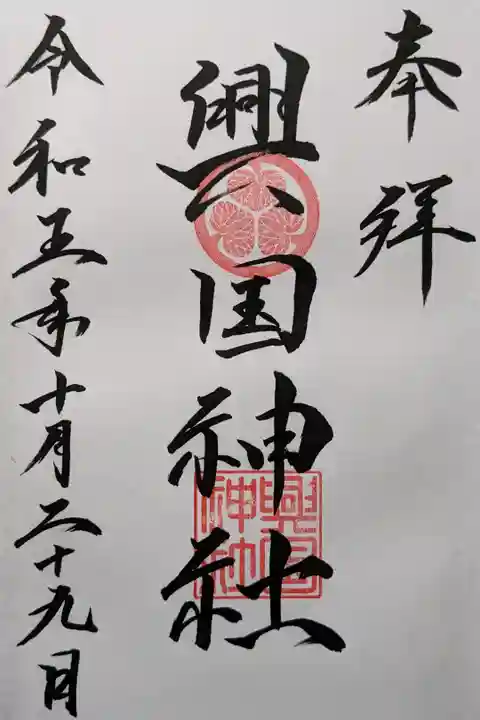 奉拝
興国神社
令和五年十月二十九日
興国神社